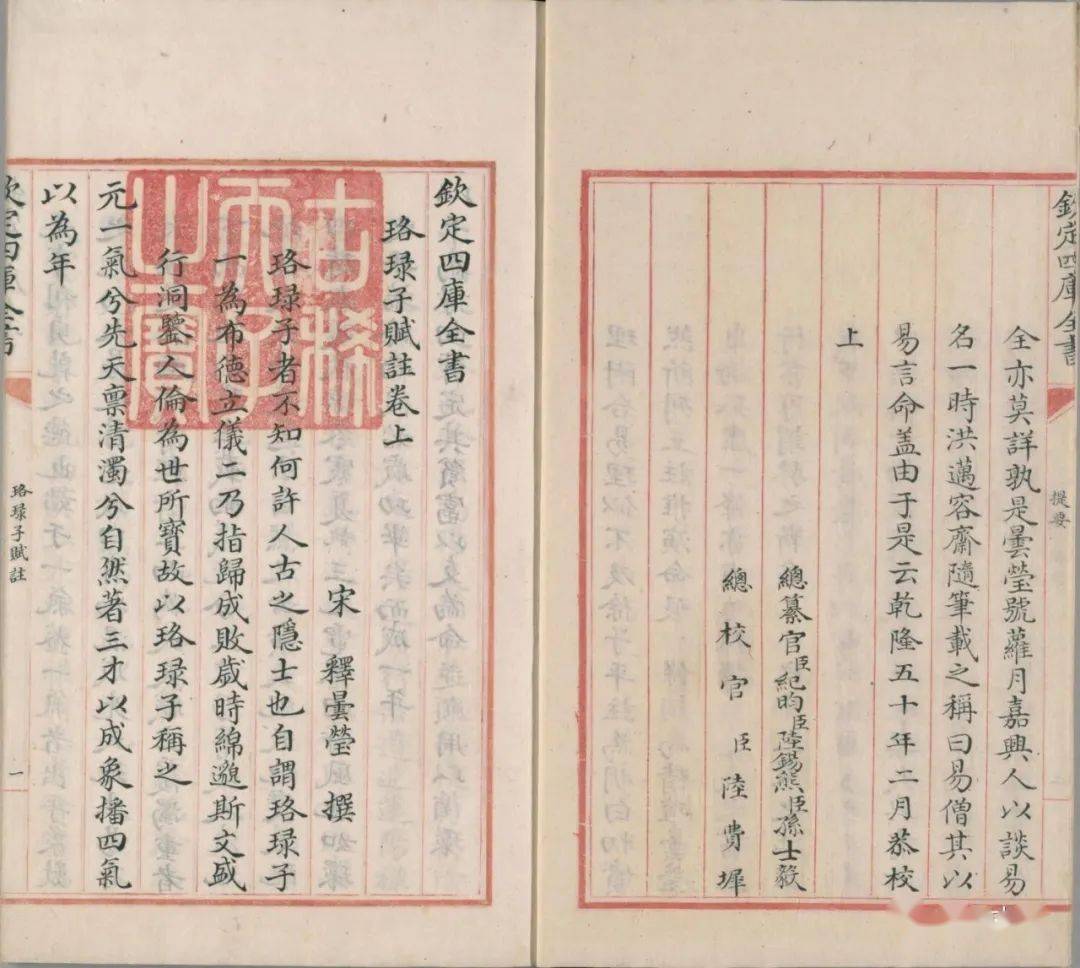 欽定四庫全書
提要
全亦莫詳孰是曇瑩號蘿月嘉興人以談易
名一時洪邁容齋隨筆載之稱曰易僧其以
易言命盖由于是云乾隆五十年二月恭校
上
總纂官臣紀昀臣陸錫熊臣孫士毅
總校官臣陸費墀
欽定四庫全書
珞琭子賦註卷上
宋釋曇瑩撰
珞琭子者不知何許人古之隱士也自謂珞琭子
一為布德立儀二乃指歸成敗歲時綿邈斯文咸
行洞鑒人倫為世所寶故以珞琭子稱之
元一氣兮先天禀清濁兮自然著三才以成象播四氣
以為年
欽定四庫全書
珞琭子賦註
一
古稀
天子
之寶